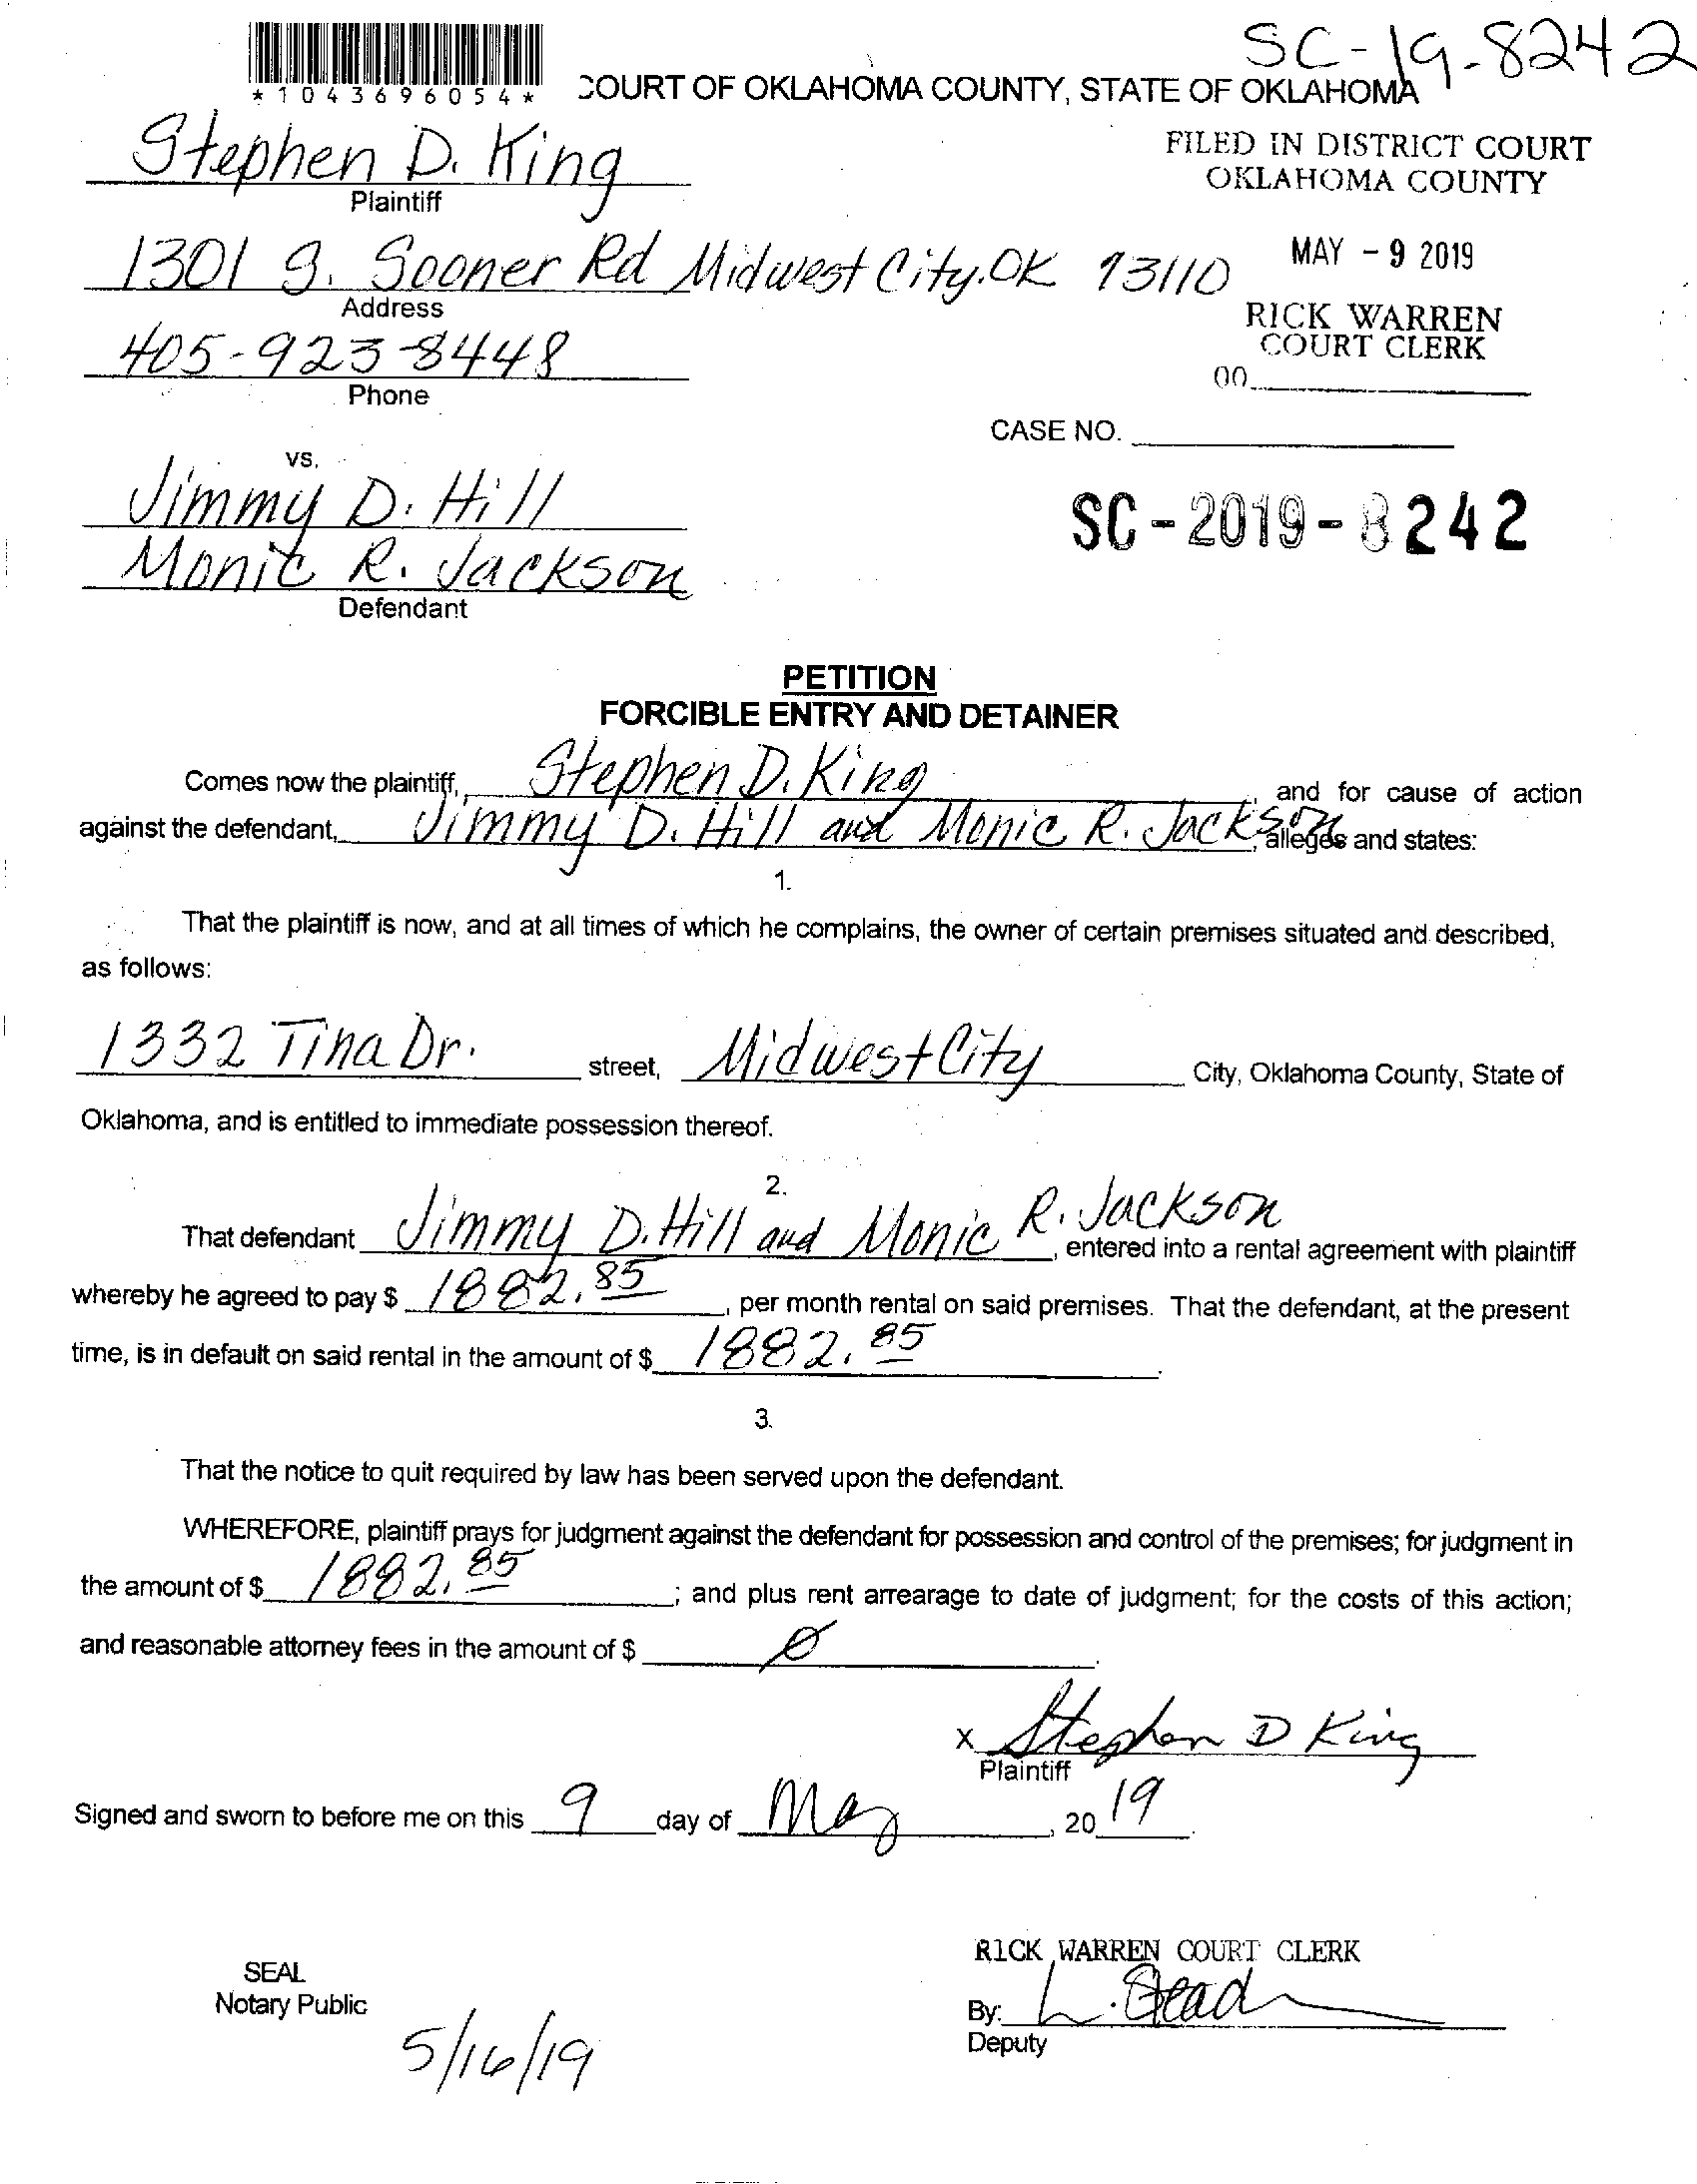 SC-19-8242
*1043696054*
COURT OF OKLAHOMA COUNTY, STATE OF OKLAHOMA
Stephen D. King
Plaintiff
FILED IN DISTRICT COURT
OKLAHOMA COUNTY
1301 S. Sooner Rd Midwest City, OK 73110
Address
MAY - 9 2019
RICK WARREN
COURT CLERK
405-923-8448
Phone
00
CASE NO.
vs.
Jimmy D. Hill
Monic R. Jackson
Defendant
SC-2019-8242
PETITION
FORCIBLE ENTRY AND DETAINER
Comes now the plaintiff, Stephen D. King and for cause of action
against the defendant, Jimmy D. Hill and Monic R. Jackson, alleges and states:
1.
That the plaintiff is now, and at all times of which he complains, the owner of certain premises situated and described,
as follows:
1332 Tina Dr. street, Midwest City City, Oklahoma County, State of
Oklahoma, and is entitled to immediate possession thereof.
2.
That defendant Jimmy D. Hill and Monic R. Jackson, entered into a rental agreement with plaintiff
whereby he agreed to pay $ 1882.85, per month rental on said premises. That the defendant, at the present
time, is in default on said rental in the amount of $ 1882.85.
3.
That the notice to quit required by law has been served upon the defendant.
WHEREFORE, plaintiff prays for judgment against the defendant for possession and control of the premises; for judgment in
the amount of $ 1882.85; and plus rent arrearage to date of judgment; for the costs of this action;
and reasonable attorney fees in the amount of $ 0.
X Stephen D King
Plaintiff
Signed and sworn to before me on this 9 day of May, 2019.
RICK WARREN COURT CLERK
SEAL
Notary Public
By:
Deputy
5/16/19